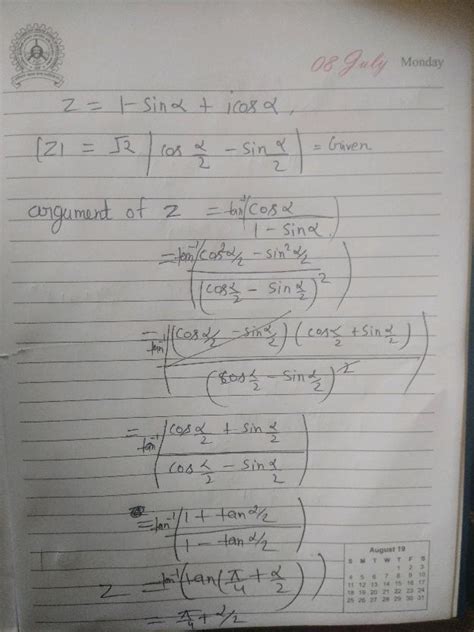 08 July Monday
Z = 1 - Sinα + i cosα,
|Z| = √2 |cos α/2 - Sin α/2| = Given
argument of Z = tan⁻¹(Cosα / 1 - Sinα)
= tan⁻¹(Cos²α/2 - sin²α/2 / (Cosα/2 - Sinα/2)²)
= tan⁻¹((Cosα/2 - Sinα/2)(Cosα/2 + Sinα/2) / (Cosα/2 - Sinα/2)²)
= tan⁻¹(Cosα/2 + Sinα/2 / Cosα/2 - Sinα/2)
= tan⁻¹(1 + tanα/2 / 1 - tanα/2)
Z = tan⁻¹(tan(π/4 + α/2))
= π/4 + α/2
August 19
S M T W T F S
1 2 3
4 5 6 7 8 9 10
11 12 13 14 15 16 17
18 19 20 21 22 23 24
25 26 27 28 29 30 31